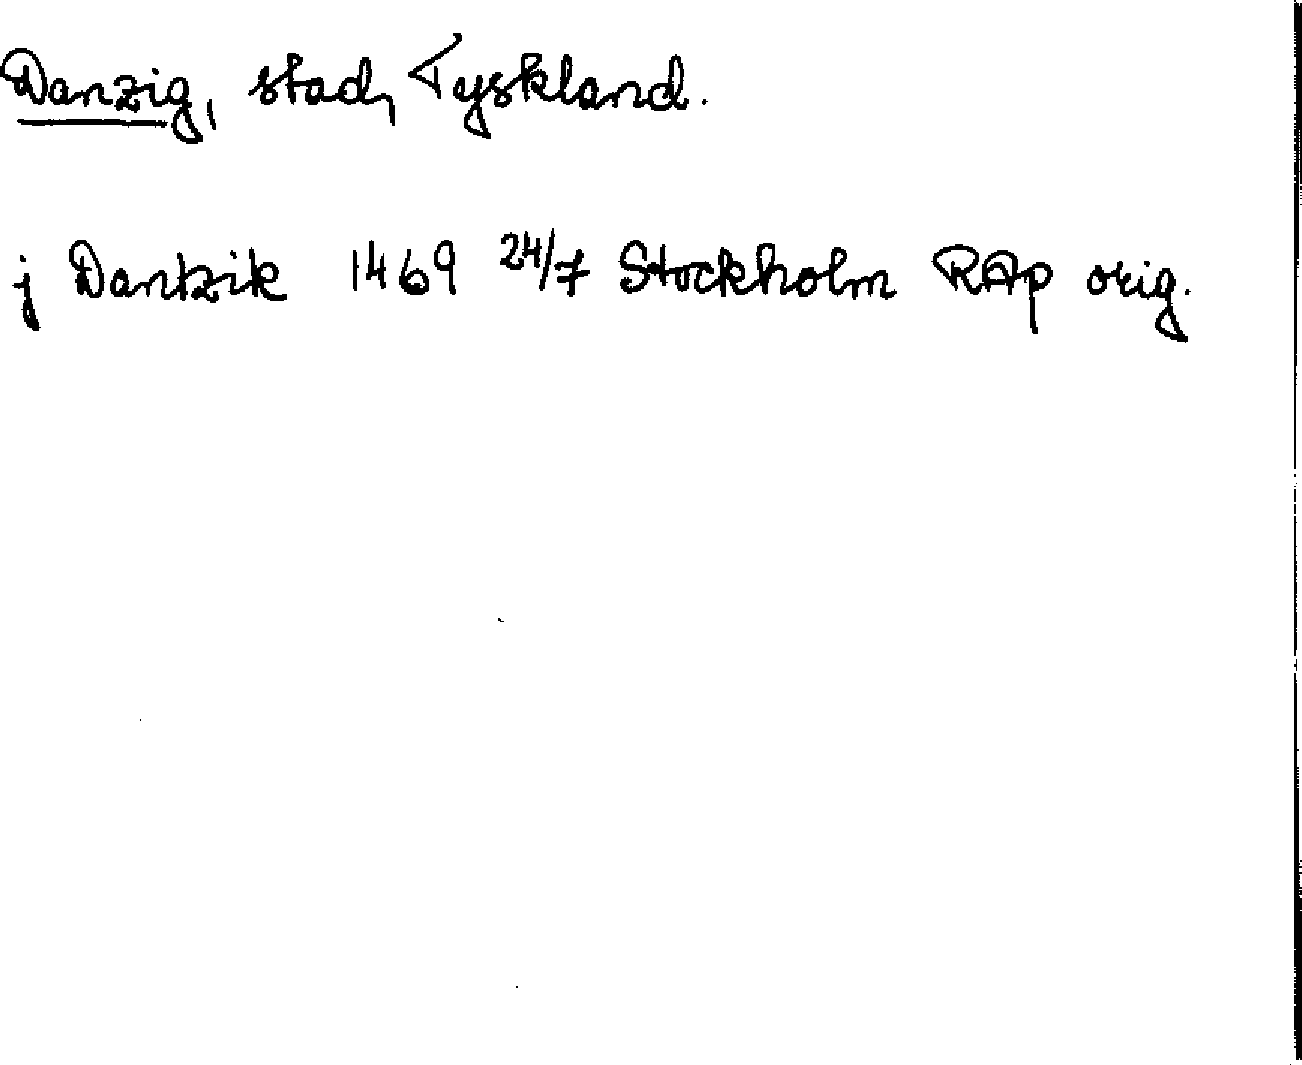 Danzig, stad, Tyskland.
j Dantzik 1469 24/7 Stockholm RAp orig.